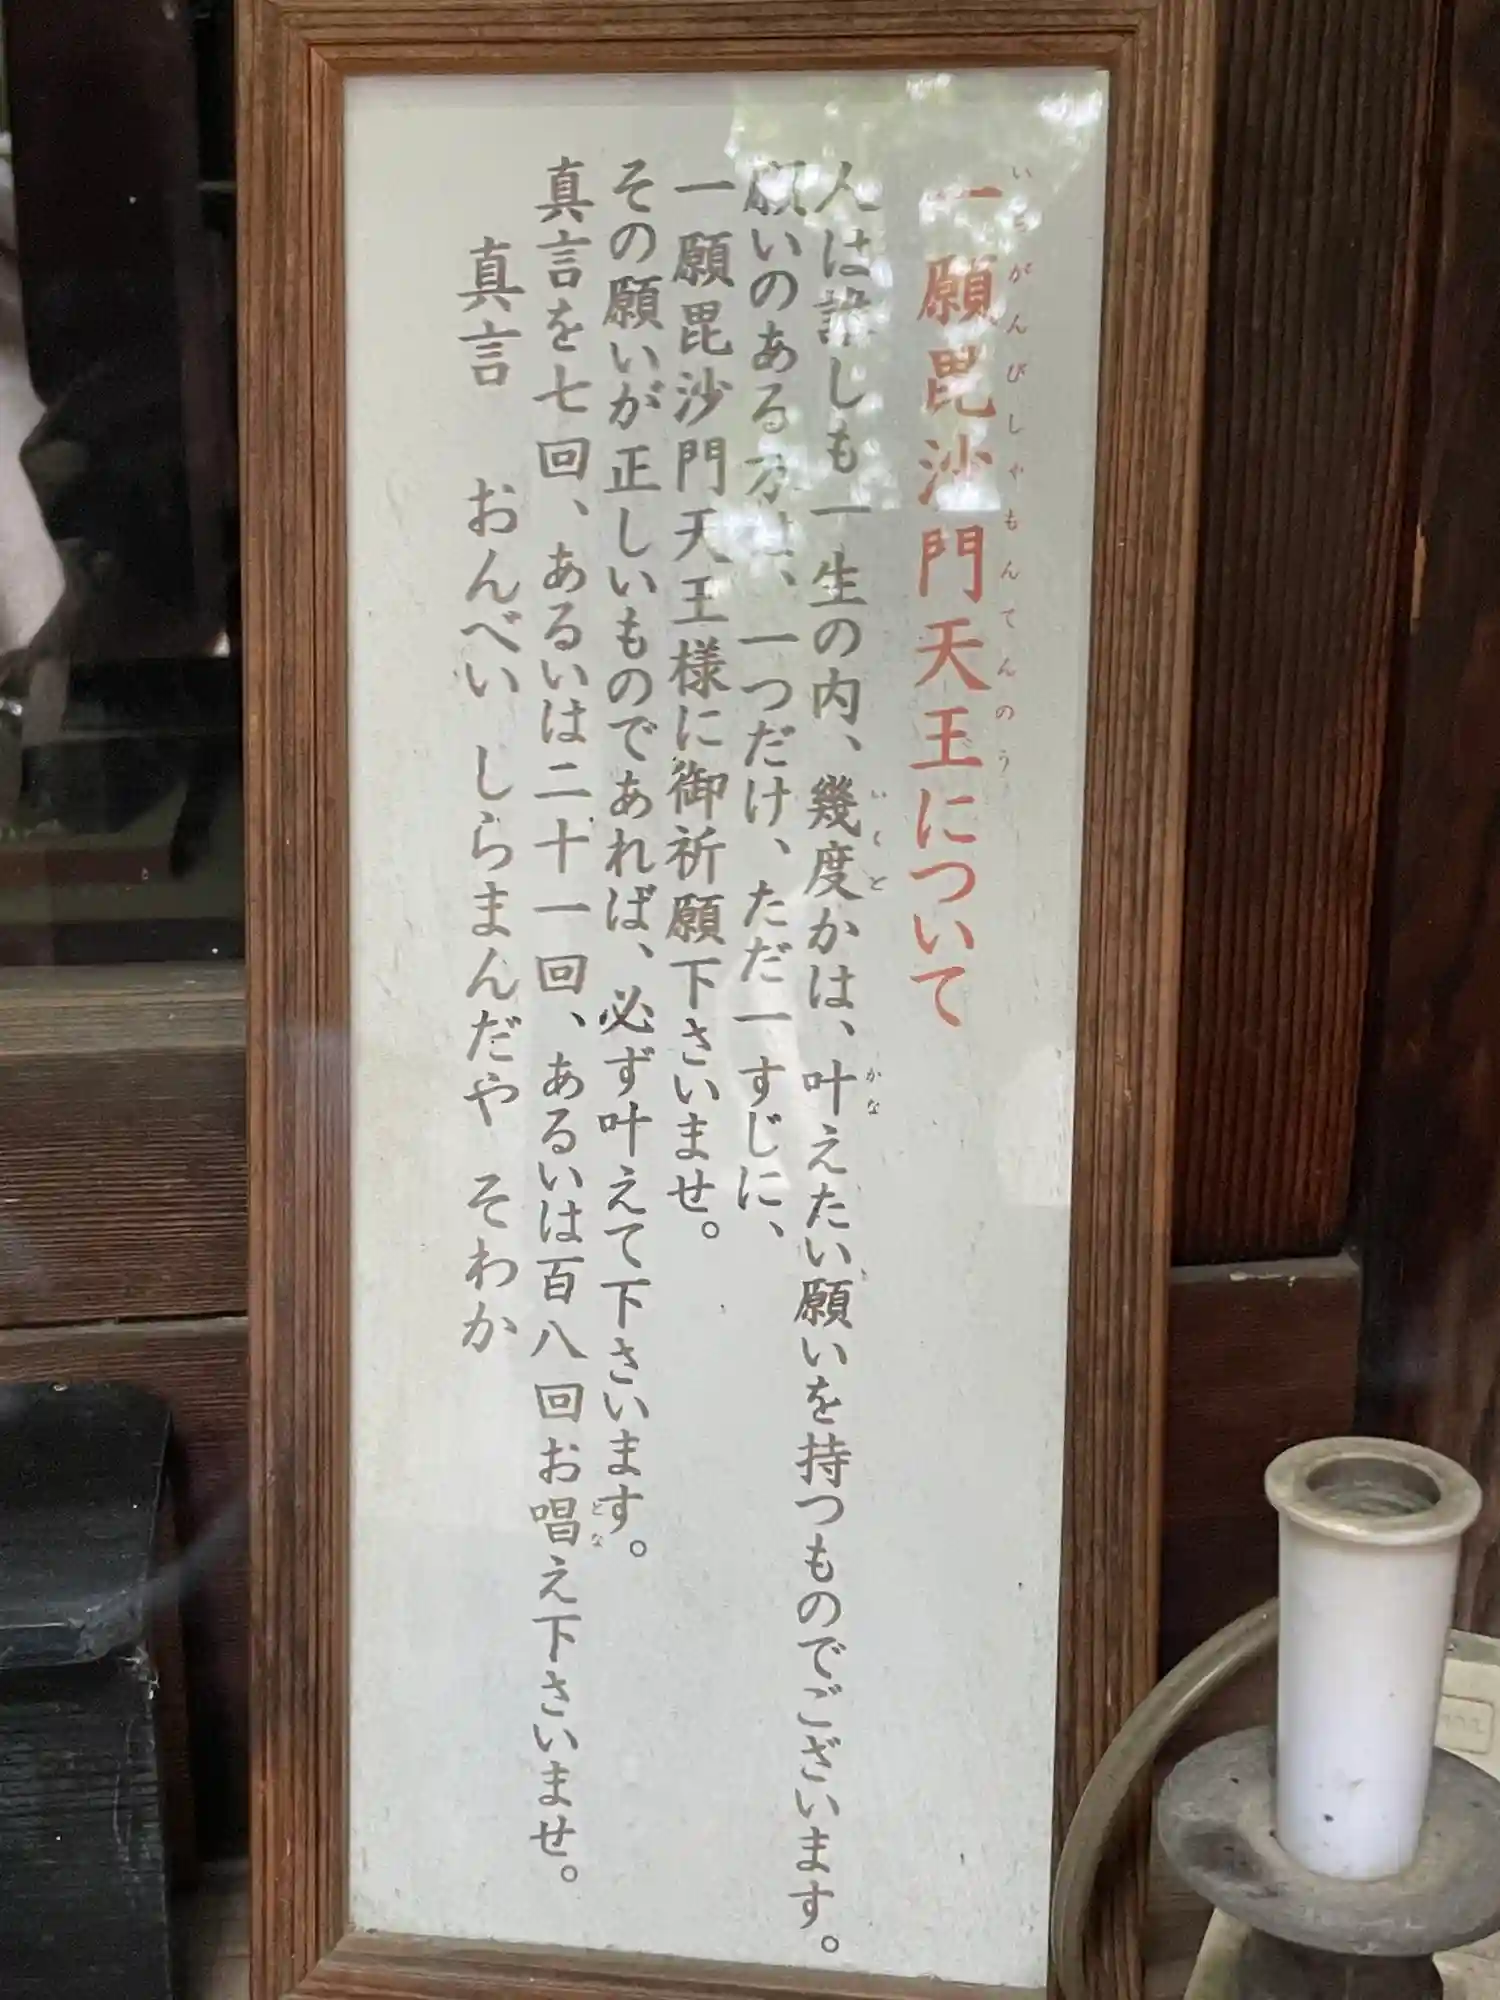 一願毘沙門天王について
いちがんびしゃもんてんのう
人は誰しも一生の内、幾度かは、叶えたい願いを持つものでございます。
いくど
かな
願いのある方は、一つだけ、ただ一すじに、
一願毘沙門天王様に御祈願下さいませ。
その願いが正しいものであれば、必ず叶えて下さいます。
真言を七回、あるいは二十一回、あるいは百八回お唱え下さいませ。
とな
真言 おんべい しらまんだや そわか